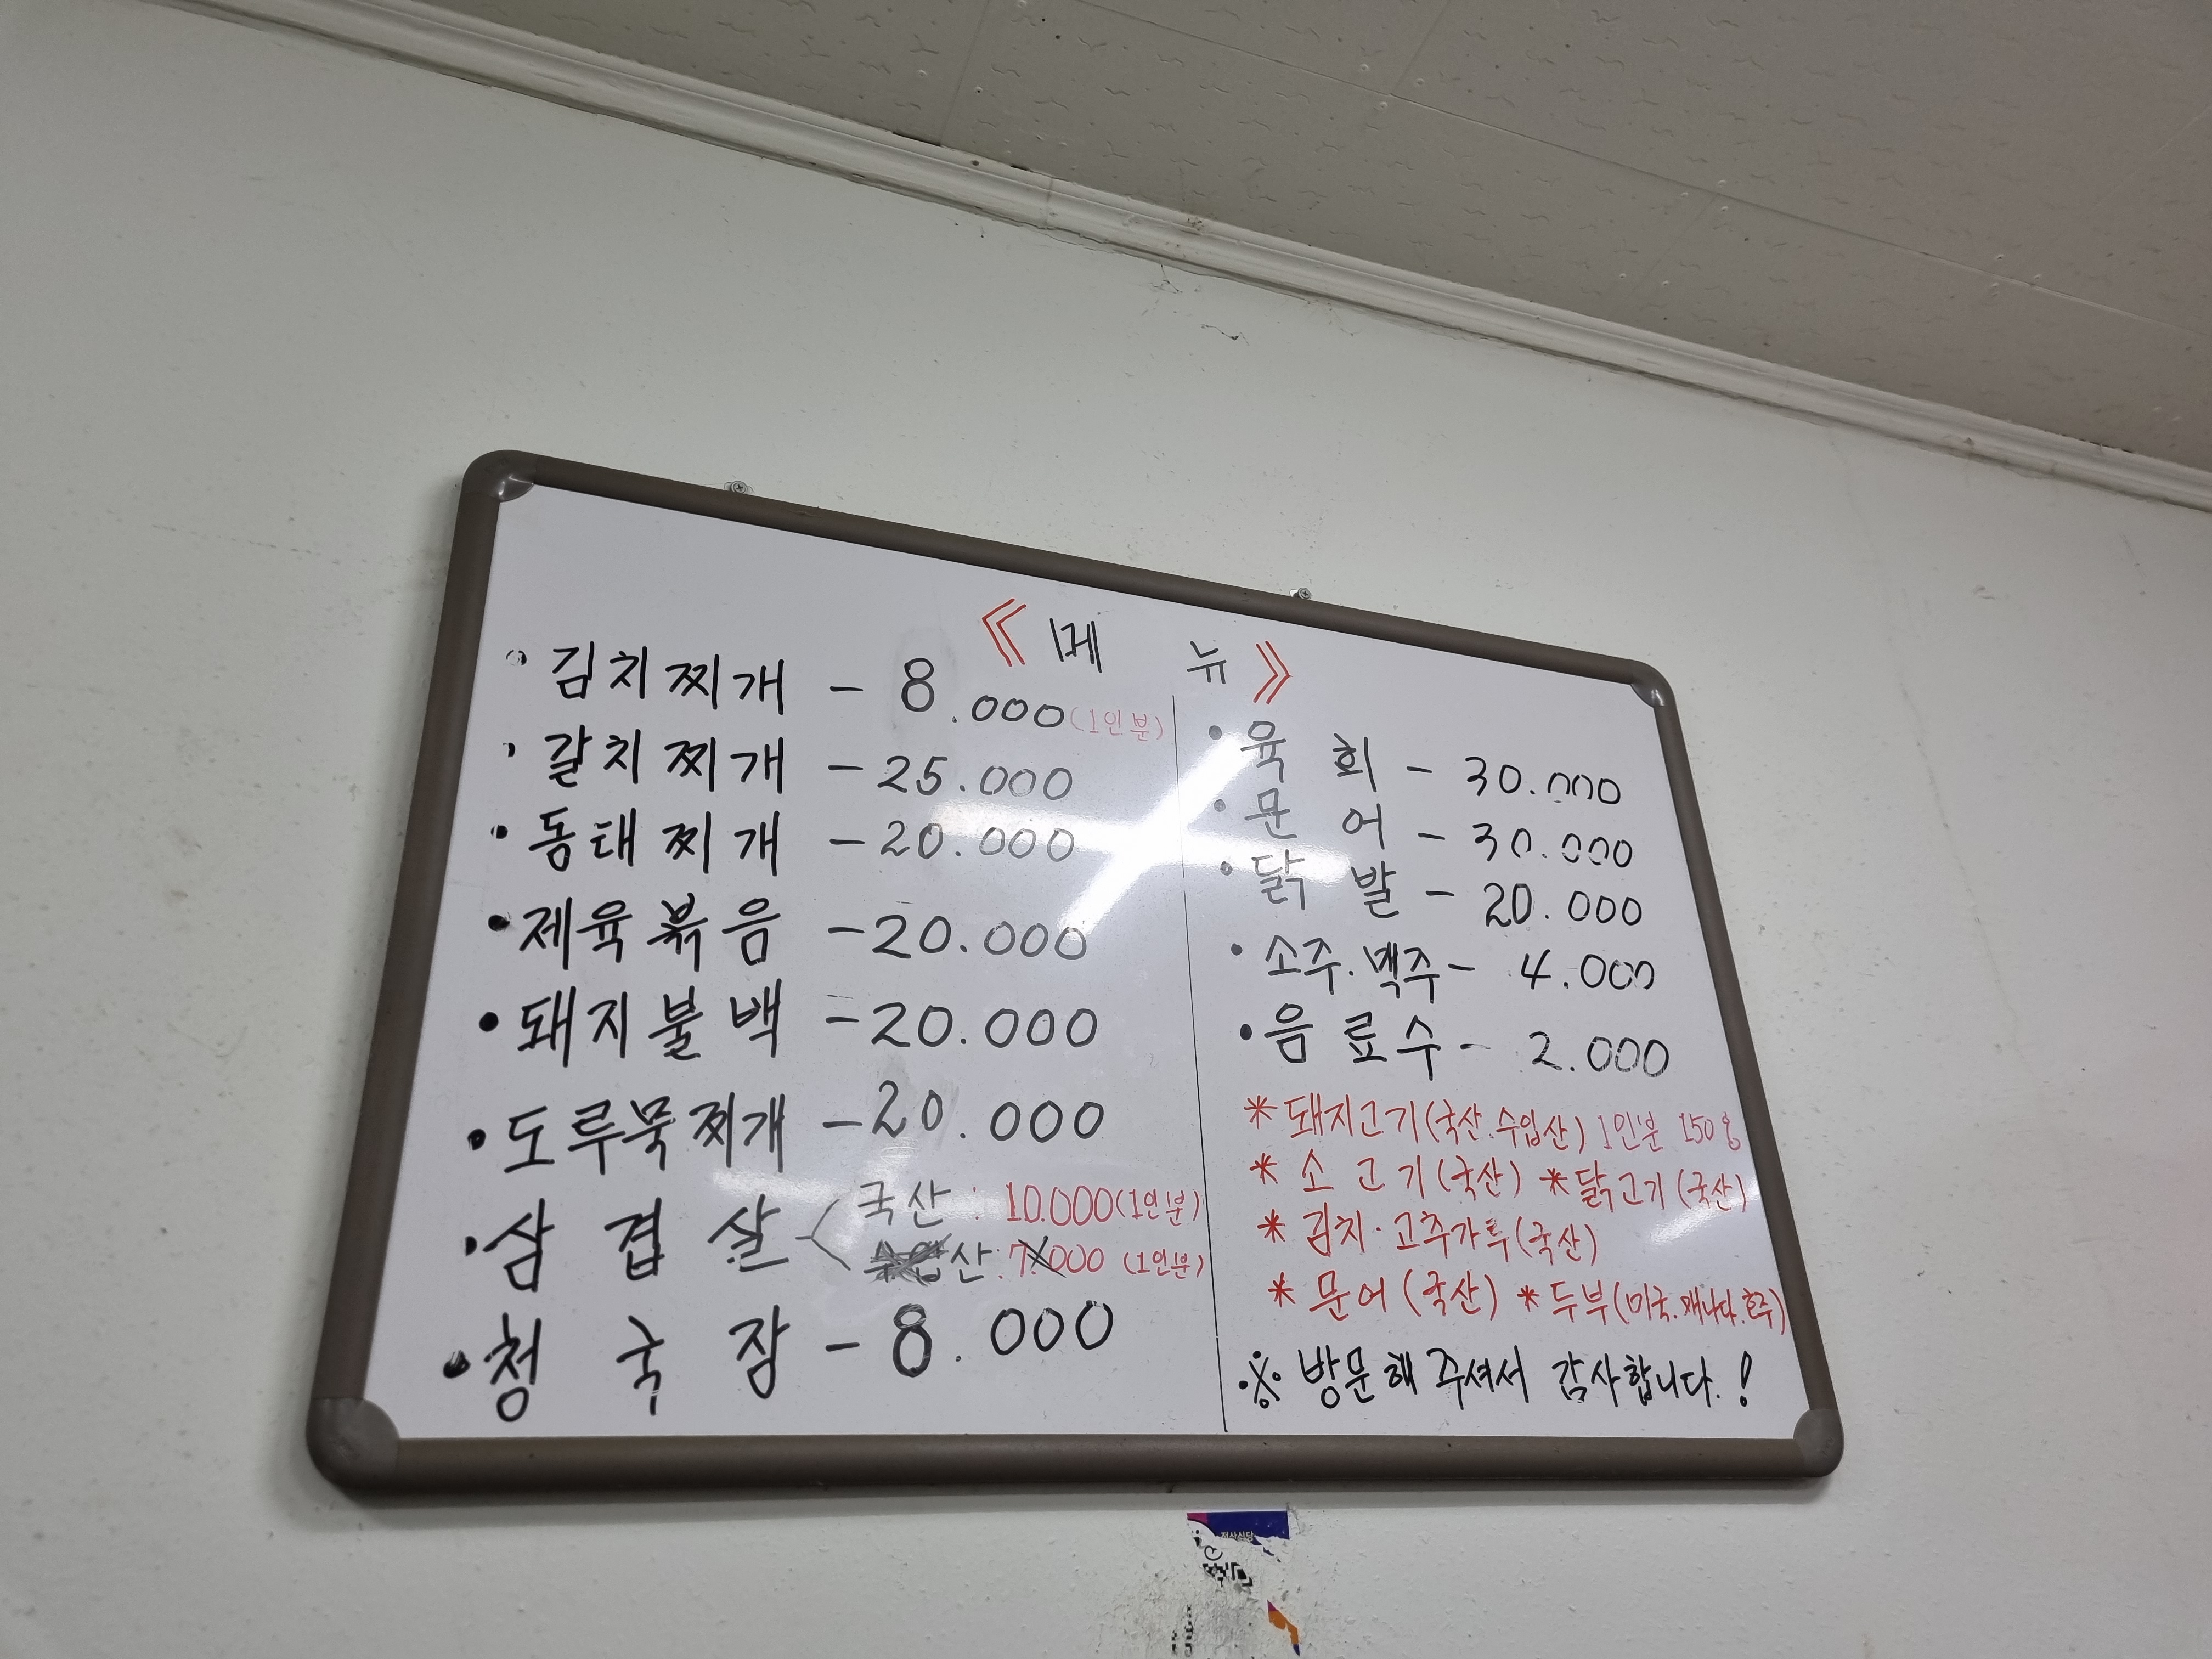 《메 뉴》
• 김치찌개 - 8.000(1인분)
• 갈치찌개 - 25.000
• 동태찌개 - 20.000
• 제육볶음 - 20.000
• 돼지불백 - 20.000
• 도루묵찌개 - 20.000
• 삼겹살 < 국산 : 10.000(1인분)
산 : 7.000 (1인분)
• 청국장 - 8.000
• 육 회 - 30.000
• 문 어 - 30.000
• 닭 발 - 20.000
• 소주.맥주 - 4.000
• 음료수 - 2.000
* 돼지고기(국산.수입산) 1인분 150g
* 소고기(국산) * 닭고기(국산)
* 김치·고추가루(국산)
* 문어(국산) * 두부(미국.캐나다.호주)
※ 방문해 주셔서 감사합니다.!